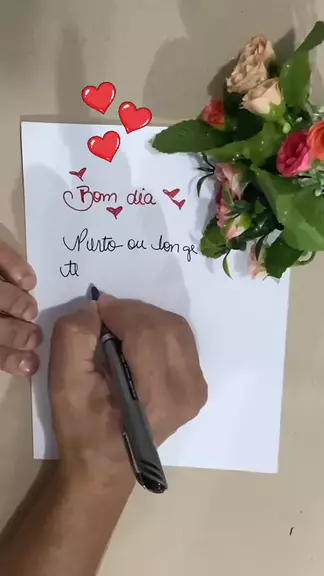 Bom dia
Perto ou longe
te